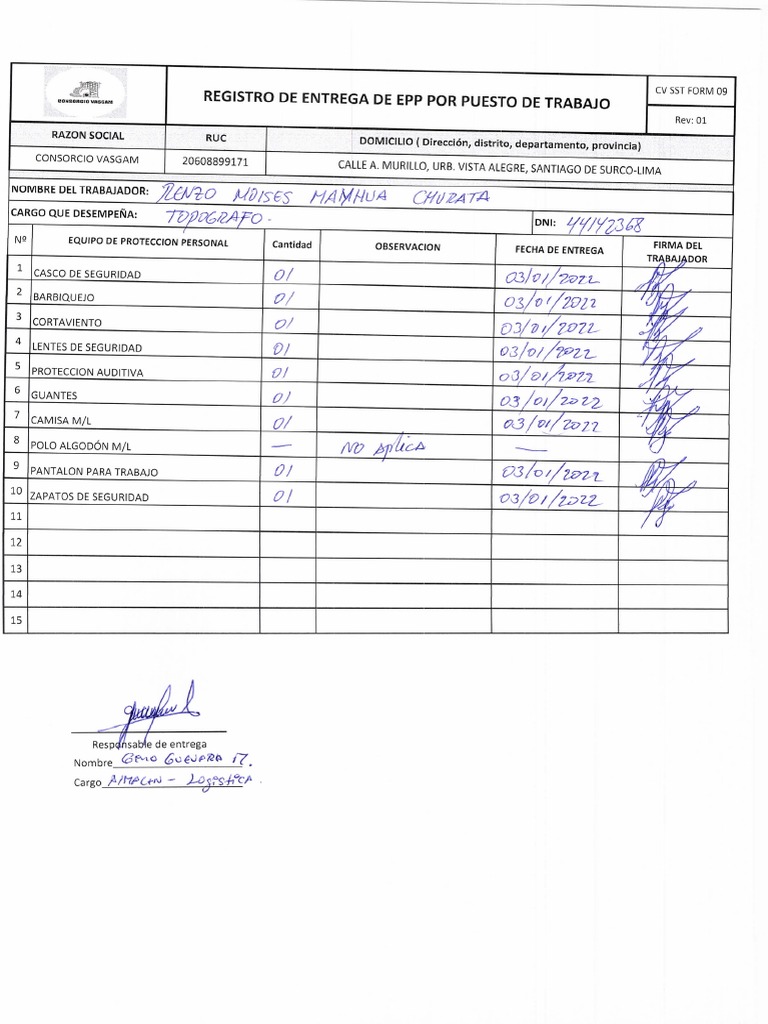 CONSORCIO VASGAM
REGISTRO DE ENTREGA DE EPP POR PUESTO DE TRABAJO
CV SST FORM 09
Rev: 01
RAZON SOCIAL RUC DOMICILIO ( Dirección, distrito, departamento, provincia)
CONSORCIO VASGAM 20608899171 CALLE A. MURILLO, URB. VISTA ALEGRE, SANTIAGO DE SURCO-LIMA
NOMBRE DEL TRABAJADOR: RENZO MOISES MAMHUA CHURATA
CARGO QUE DESEMPEÑA: TOPOGRAFO. DNI: 44142368
Nº EQUIPO DE PROTECCION PERSONAL Cantidad OBSERVACION FECHA DE ENTREGA FIRMA DEL TRABAJADOR
1 CASCO DE SEGURIDAD 01 03/01/2022
2 BARBIQUEJO 01 03/01/2022
3 CORTAVIENTO 01 03/01/2022
4 LENTES DE SEGURIDAD 01 03/01/2022
5 PROTECCION AUDITIVA 01 03/01/2022
6 GUANTES 01 03/01/2022
7 CAMISA M/L 01 03/01/2022
8 POLO ALGODÓN M/L — NO APlicA —
9 PANTALON PARA TRABAJO 01 03/01/2022
10 ZAPATOS DE SEGURIDAD 01 03/01/2022
11
12
13
14
15
Responsable de entrega
Nombre GUEVARA M.
Cargo AlMACEN - LOGisticA.